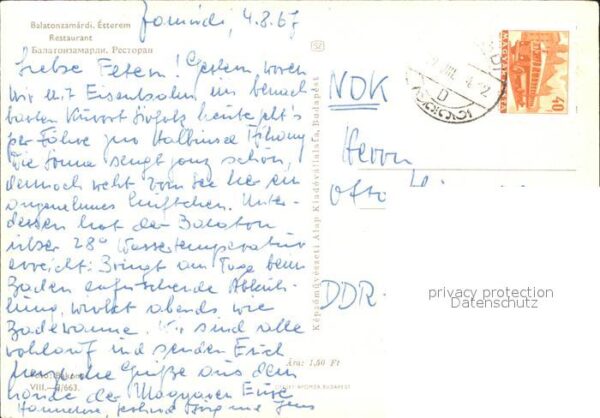 Zamárdi, 4.8.67
Balatonzamárdi. Étterem
Restaurant
Балатонзамарди. Ресторан
Liebe Eltern! Gestern waren
wir mit Eisenbahn im benach
barten Kurort Siófok heute geht's
per Fähre zur Halbinsel Tihany
Die Sonne sengt ganz schön,
dennoch weht vom See her ein
angenehmes Lüftchen. Unter-
dessen hat der Balaton
über 28° Wassertemperatur
erreicht: Bringt am Tage beim
Baden erfrischende Abküh-
lung, wirkt abends wie
Badewanne. Wir sind alle
wohlauf und senden Euch
herzliche Grüße aus dem
Lande der Magyaren Eure
Hannelore, und Jens
VIII.
Képzőművészeti Alap Kiadóvállalata, Budapest
Ára: 1,50 Ft
NDK
Herrn
Otto
DDR
MAGYAR POSTA
40
privacy protection
Datenschutz